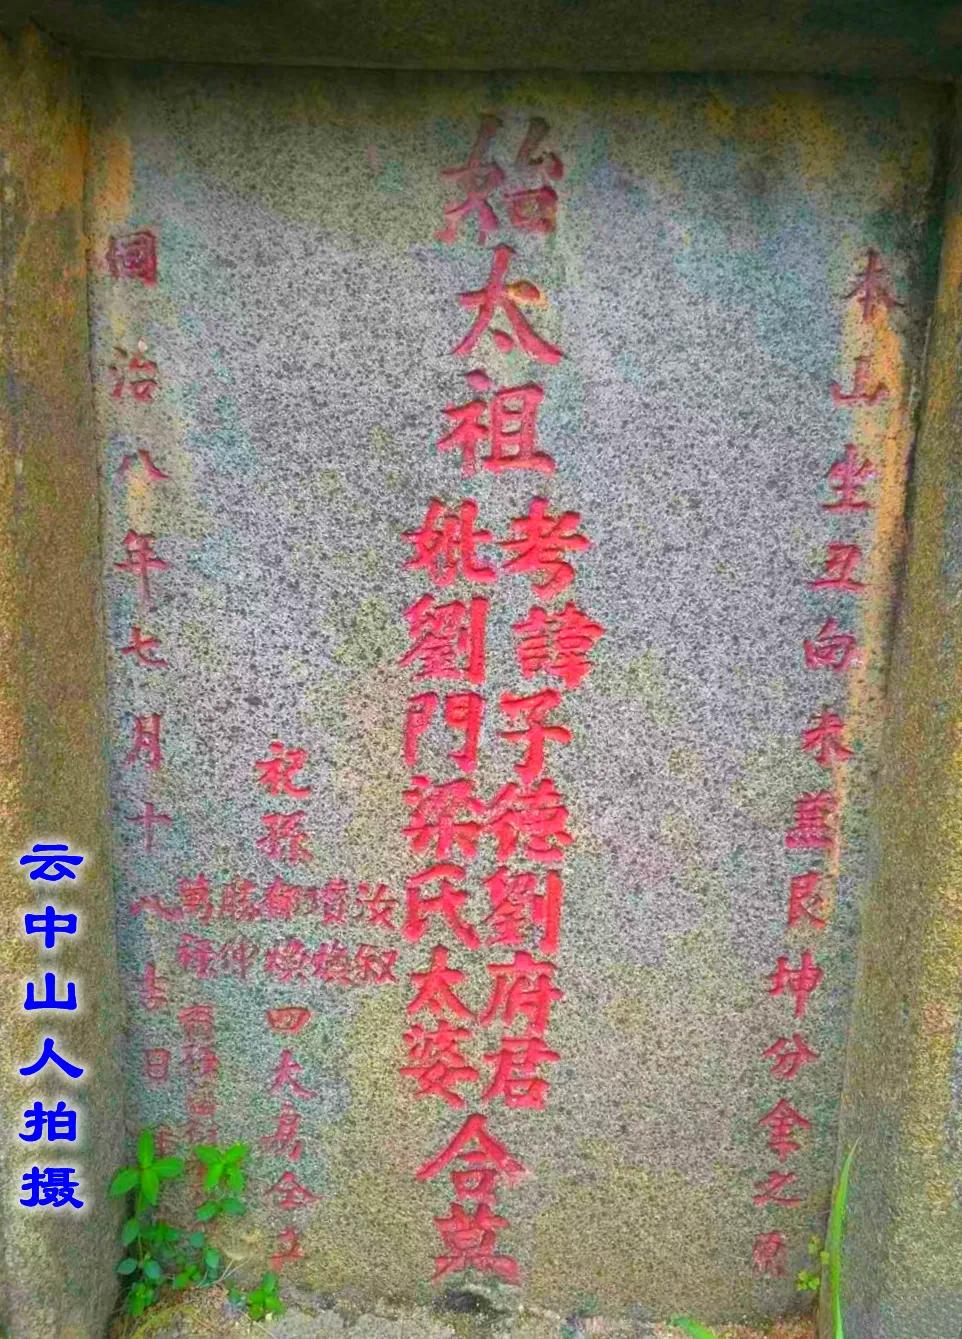 本山坐丑向未蓋艮坤分金之原
始太祖
考諱子德劉府君
妣劉門梁氏太婆
合墓
祀孫
汝
四大房仝立
同治八年七月十八吉日
云中山人拍摄